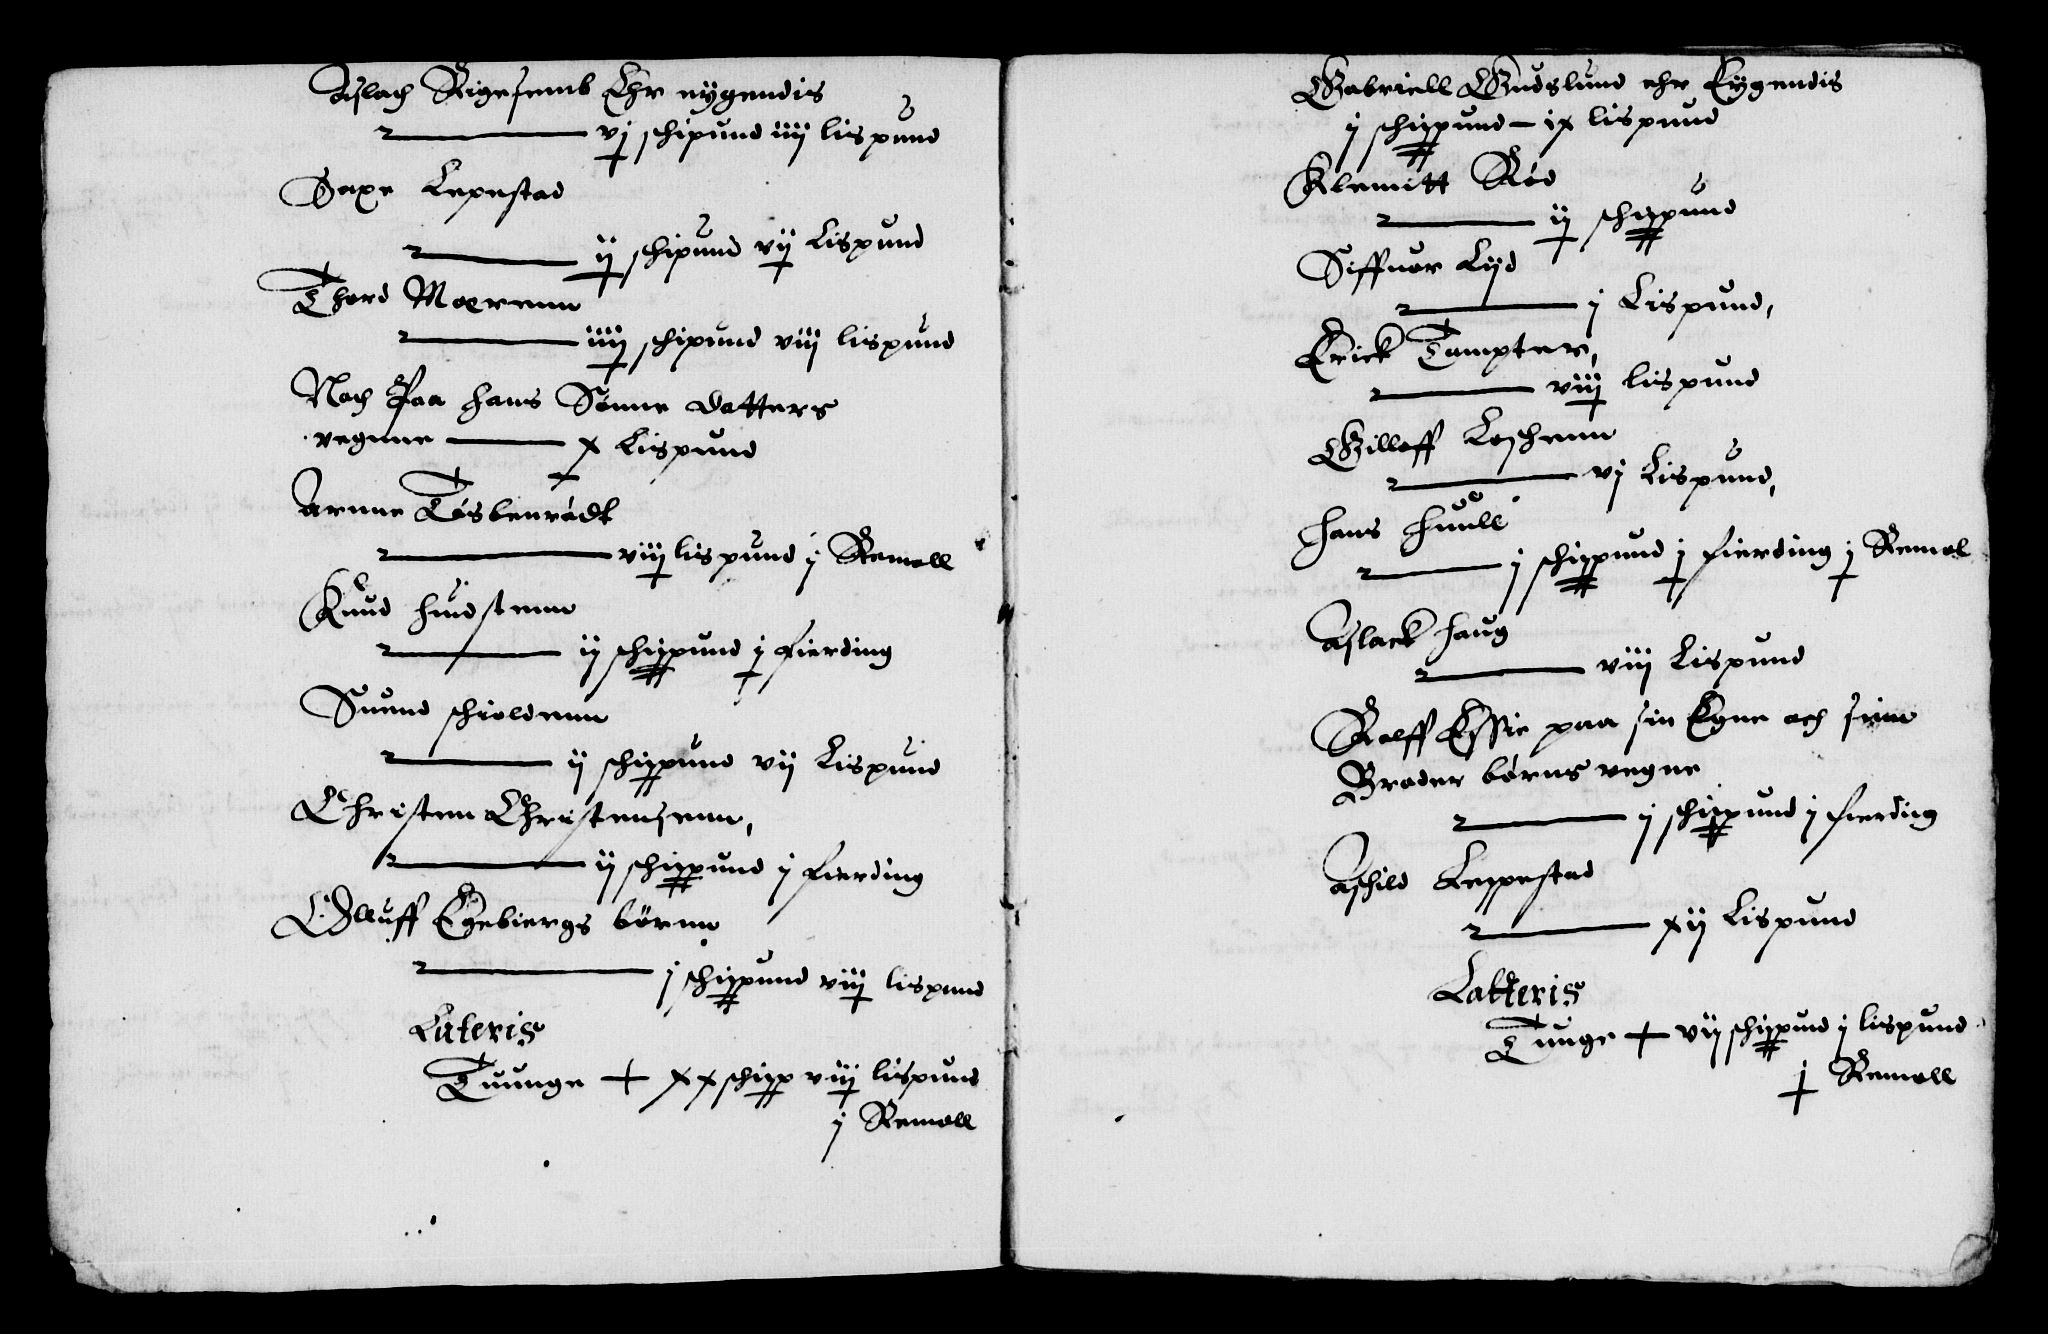 Aslach Rigesemb Ehr eygendis
vj schipund iiij lispund
Saxe Lepestad
ij schipund vij Lispund
Thord Moerenn
iiij schipund viij lispund
Noch Paa hans Sønne datters
vegnne x Lispund
Arnne Tøsbenrødt
viij lispund j Remoll
Knud hudstenn
ij schippund j fierding
Suend schioldenn
ij schippund vij Lispund
Christen Christensenn,
ij schippund j fierding
Olluff Egebiergs börnn
j schippund viij lispund
Lateris
Tuunge xx schipp viij lispund
j Remoll
Gabriell Gudslund ehr Eygendis
ij schippund – ix lispund
Klemitt Rød
ij schippund
Siffuor Lijd
j Lispund,
Erick Tompter,
viij lispund
Gilloff Loshenn
vj Lispund,
Hans Huull
j schippund j fierding j Remol
Aslack Haug
viij Lispund
Rolff Essie paa sin Egne och sinn
Broder børns vegne
ij schippund j fierding
Aschild Leppestad
xij Lispund
Latteris
Tunge vij schippund j lispund
j Remoll